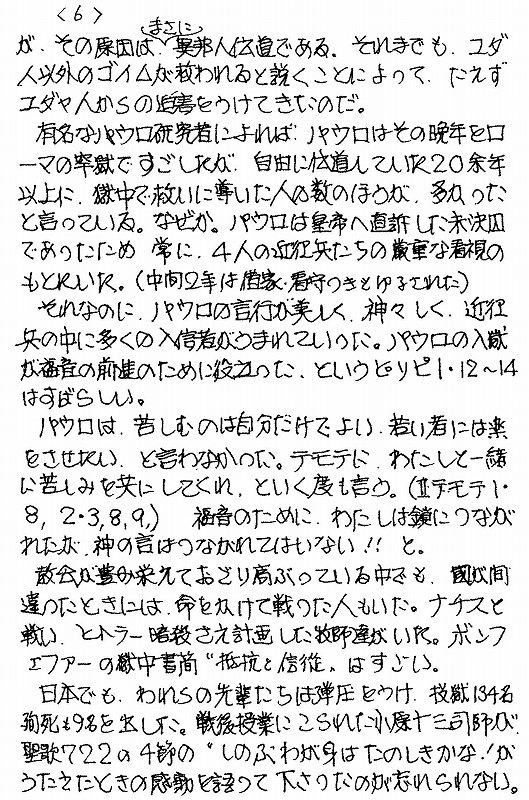 <6>
まさに
が、その原因は、異邦人伝道である。それまでも、ユダヤ
人以外のゴイムが救われると説くことによって、たえず
ユダヤ人からの迫害をうけてきたのだ。
有名なパウロ研究者によれば、パウロはその晩年をロ
ーマの牢獄ですごしたが、自由に伝道していた20余年
以上に、獄中で救いに導いた人の数のほうが、多かった
と言っている。なぜか。パウロは皇帝へ直訴した未決囚
であったため 常に、4人の近衛兵たちの厳重な看視の
もとにいた。(中間2年は借家・看守つきとゆるされた)
それなのに、パウロの言行が美しく、神々しく、近衛
兵の中に多くの入信者がうまれていった。パウロの入獄
が福音の前進のために役立った、というピリピ1・12〜14
はすばらしい。
パウロは、苦しむのは自分だけでよい、若い者には楽
をさせたい、と言わなかった。テモテに、わたしと一緒
に苦しみを共にしてくれ、といく度も言う。(Ⅱテモテ1・
8, 2・3,8,9,) 福音のために、わたしは鎖につなが
れたが、神の言はつながれてはいない!! と。
教会が豊み栄えておごり高ぶっている中でも、国が間
違ったときには、命をかけて戦った人もいた。ナチスと
戦い、ヒトラー暗殺さえ計画した牧師達がいた。ボンフ
ェファーの獄中書簡“抵抗と信従”はすごい。
日本でも、われらの先輩たちは弾圧をうけ、投獄134名
殉死も9名を出した。戦後授業にこられた小原十三司師が
聖歌722の4節の“しのぶわが身はたのしきかな!が
うたえたときの感動を語って下さったのが忘れられない。